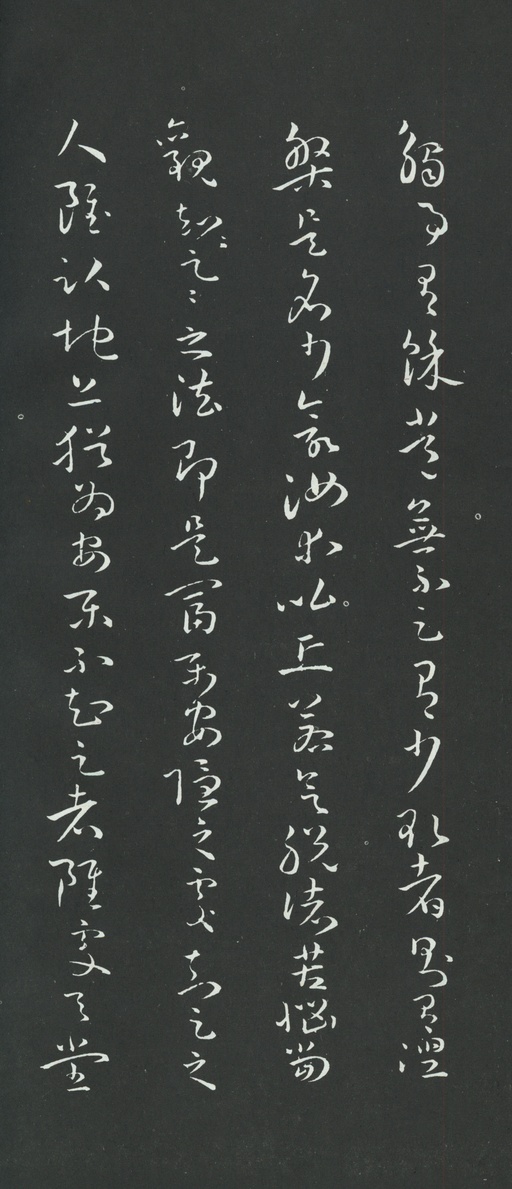 觸事有餘常無不足有少欲者則有涅
槃是名少欲汝等比丘若欲脫諸苦惱當
觀知〻足〻之法即是富樂安隱之處知足之
人雖臥地上猶為安樂不知足者雖處天堂